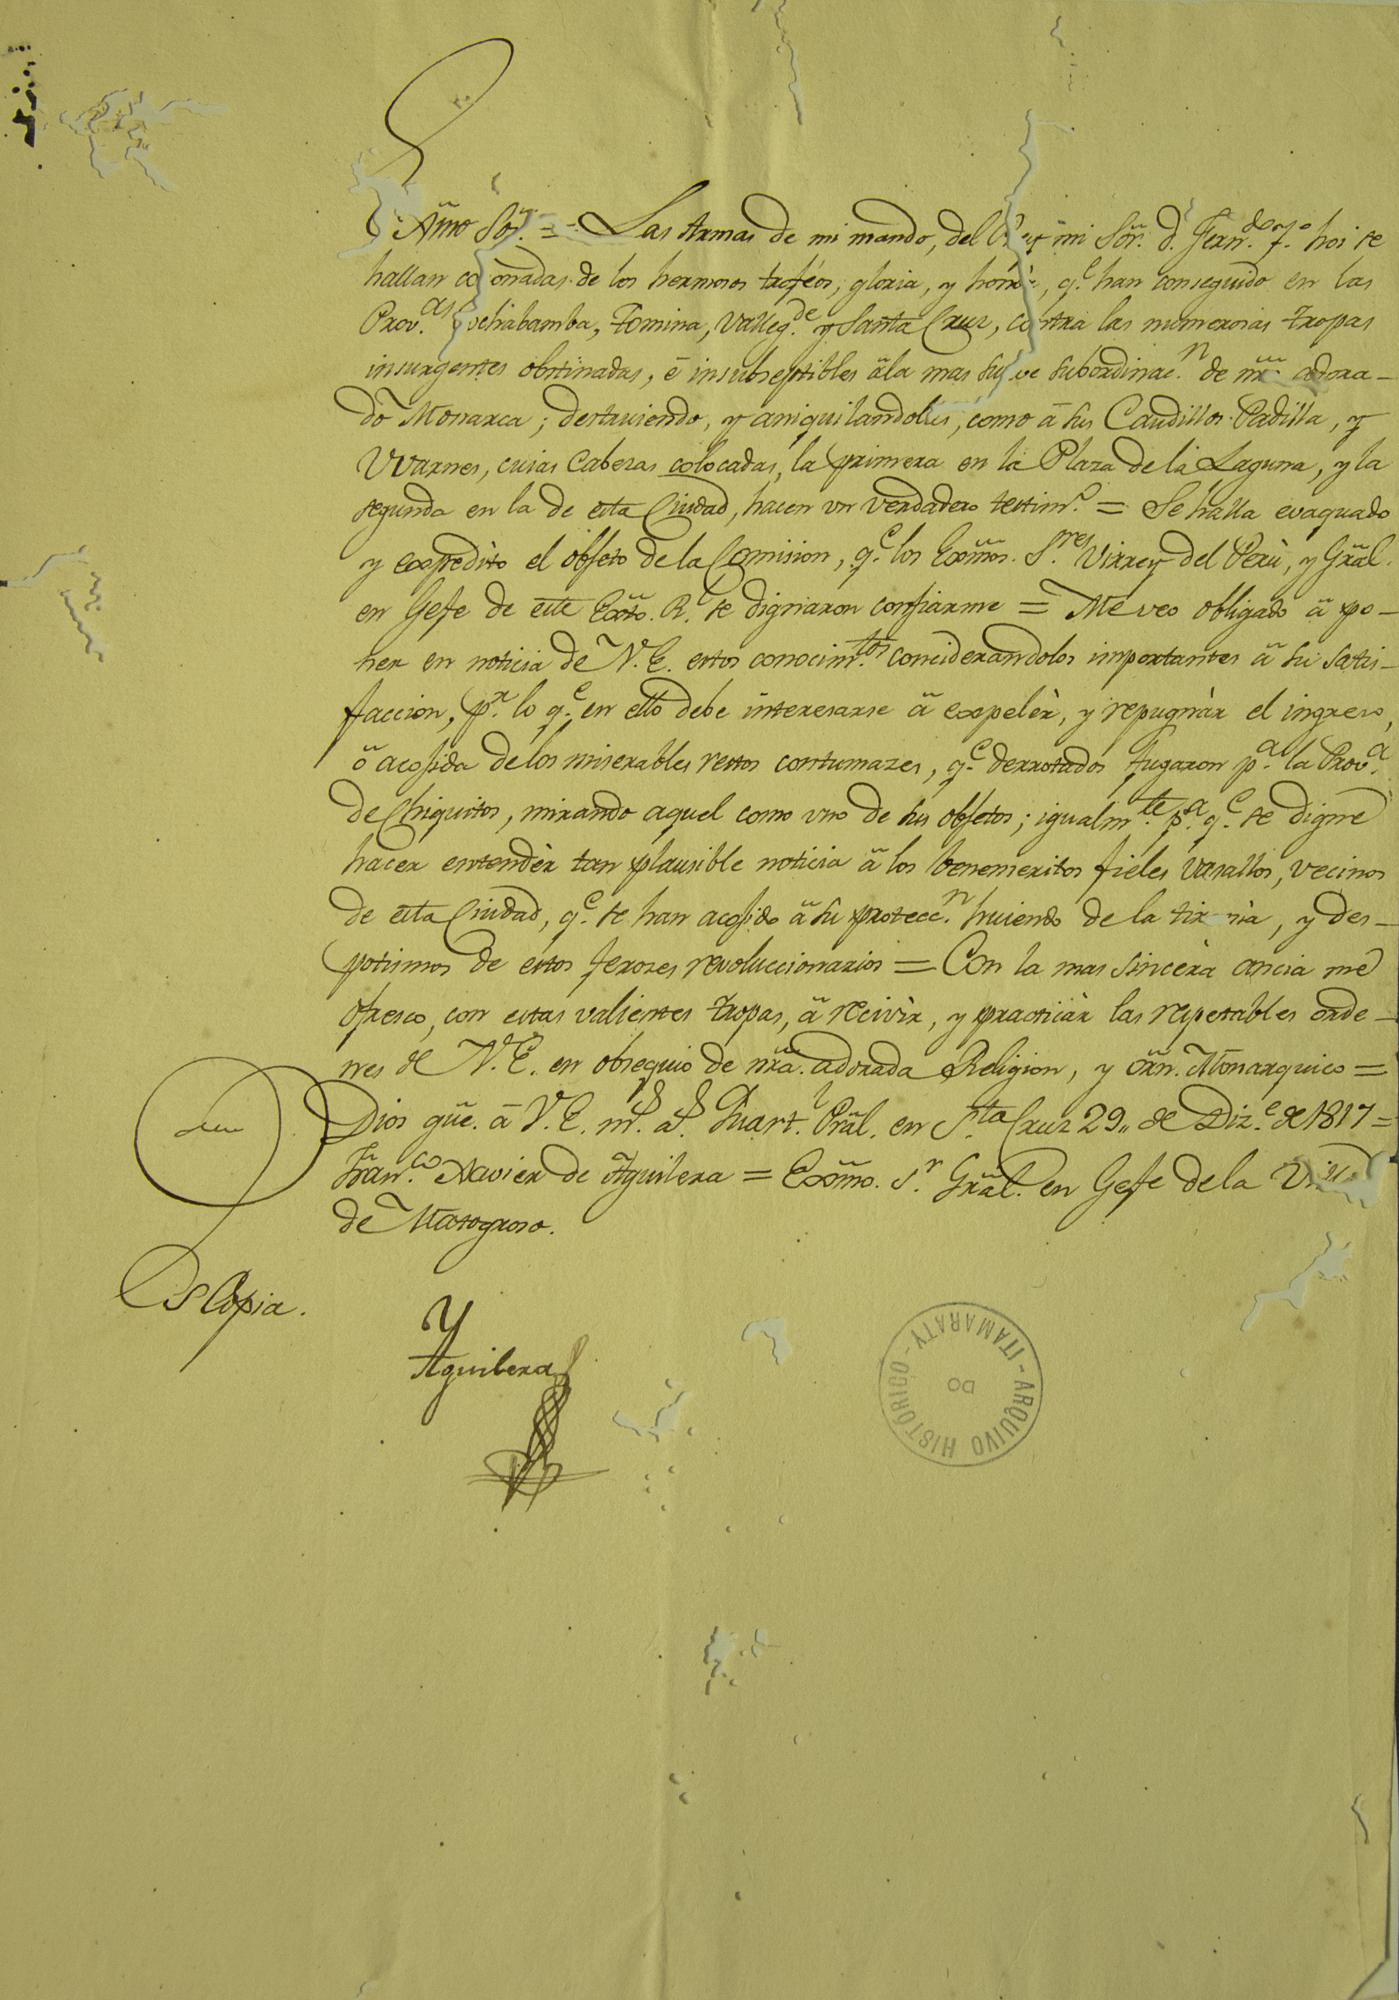 Exmo Sõr. = Las Armas de mi mando, del Rey mi Sõr. d. Fern.do 7.o hoi se
hallan coronadas de los hermosos trofeos, gloria, y honra, q.e han conseguido en las
Prov.as Cochabamba, Tomina, Valleg.de y Santa Cruz, contra las numerosas tropas
insurgentes obstinadas, é insuseptibles ála mas suave subordinac.n de ñro adora-
do Monarca; destruiendo, y aniquilandolas, como á sus Caudillos Padilla, y
Warnes, cuias Cabezas colocadas, la primera en la Plaza de la Laguna, y la
segunda en la de esta Ciudad, hacen un verdadero testim.o = Se halla evaquado
y expedito el objeto de la Comision, q.e los Exmõs. S.res Virrey del Perú, y Gral.
en Gefe de este Exto. R.l se dignaron confiarme = Me veo obligado á po-
ner en noticia de V. E. estos conocim.tos conciderandolos importantes á su satis-
faccion, p.r lo q.e en ello debe interesarse á expelèr, y repugnàr el ingreso,
ó acojida de los miserables restos contumazes, q.e derrotados fugaron p.a la Prov.a
de Chiquitos, mirando aquel como uno de sus objetos; igualm.te p.a q.e se digne
hacer entendèr tan plausible noticia á los benemeritos fieles vasallos, vecinos
de esta Ciudad, q.e se han acojido á su protecc.n huiendo de la tirania, y des-
potismos de estos ferozes revoluccionarios = Con la mas sincèra ancia me
ofresco, con estas valientes tropas, á recivìr, y practicàr las respetables orde-
nes de V. E. en obsequio de ñra. adorada Religion, y orñ. Monarquico =
Dios gũe. á V. E. m.s a.s Quart.l Pral. en S.ta Cruz 29,, de Diz.e de 1817 =
Fran.co Xavier de Aguilera = Exmõ. S.r Gral. en Gefe de la Villa
de Matogroso.
Es Copia.
Aguilera
ARQUIVO HISTÓRICO DO ITAMARATY